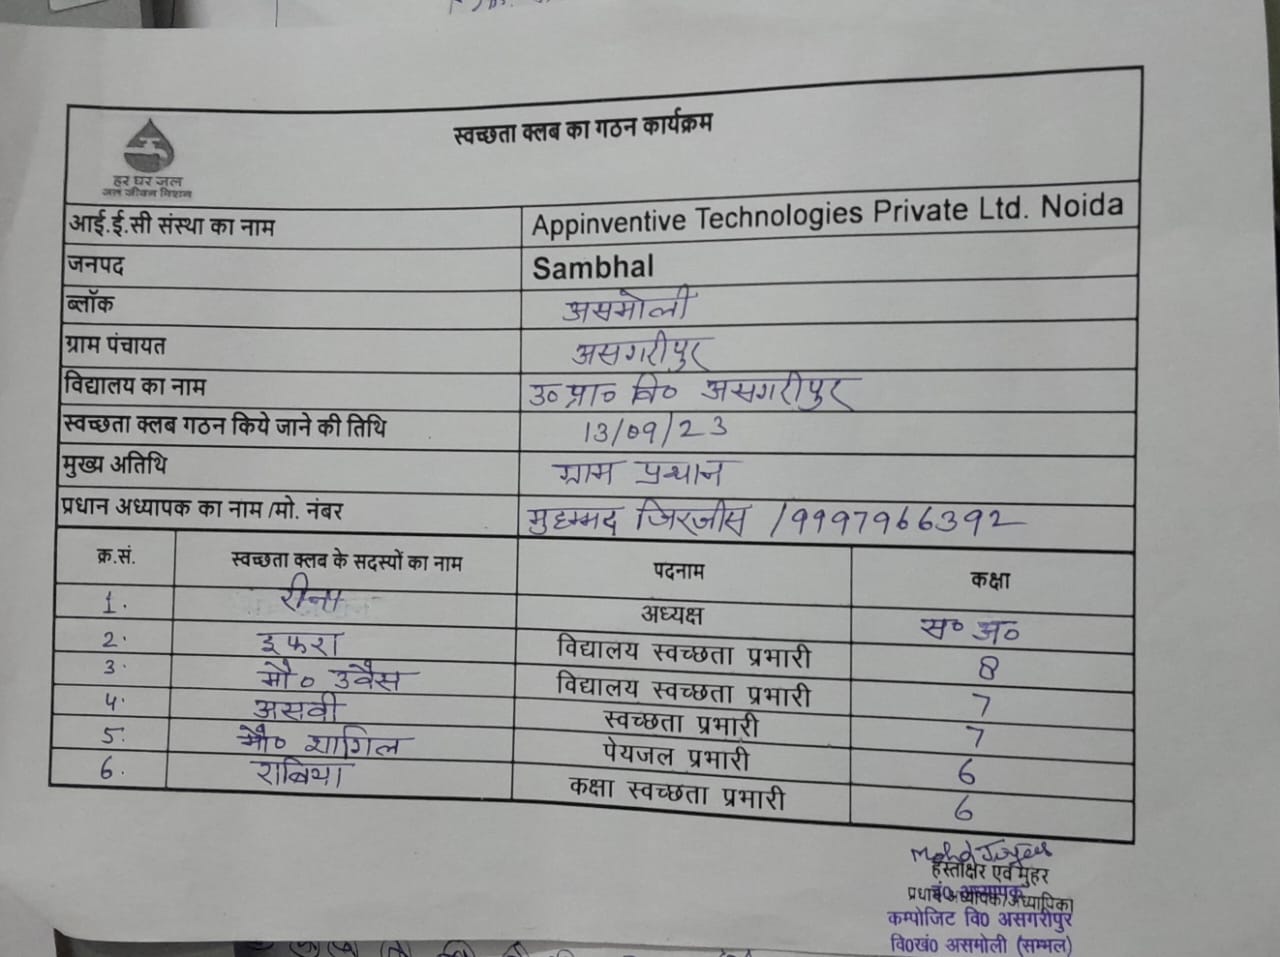 स्वच्छता क्लब का गठन कार्यक्रम
हर घर जल
जल जीवन मिशन
आई.ई.सी संस्था का नाम Appinventive Technologies Private Ltd. Noida
जनपद Sambhal
ब्लॉक असमोली
ग्राम पंचायत असगरीपुर
विद्यालय का नाम उ० प्रा० वि० असगरीपुर
स्वच्छता क्लब गठन किये जाने की तिथि 13/09/23
मुख्य अतिथि ग्राम प्रधान
प्रधान अध्यापक का नाम /मो. नंबर मुहम्मद जिरजीस /9997966392
क्र.सं. स्वच्छता क्लब के सदस्यों का नाम पदनाम कक्षा
1. रीना अध्यक्ष स० अ०
2. इफरा विद्यालय स्वच्छता प्रभारी 8
3. मौ० उवैस विद्यालय स्वच्छता प्रभारी 7
4. असवी स्वच्छता प्रभारी 7
5. मौ० शागिल पेयजल प्रभारी 6
6. राबिया कक्षा स्वच्छता प्रभारी 6
Mohd
हस्ताक्षर एवं मुहर
प्रधान अध्यापक/अध्यापिका
कम्पोजिट वि0 असगरीपुर
वि0खं0 असमोली (सम्भल)